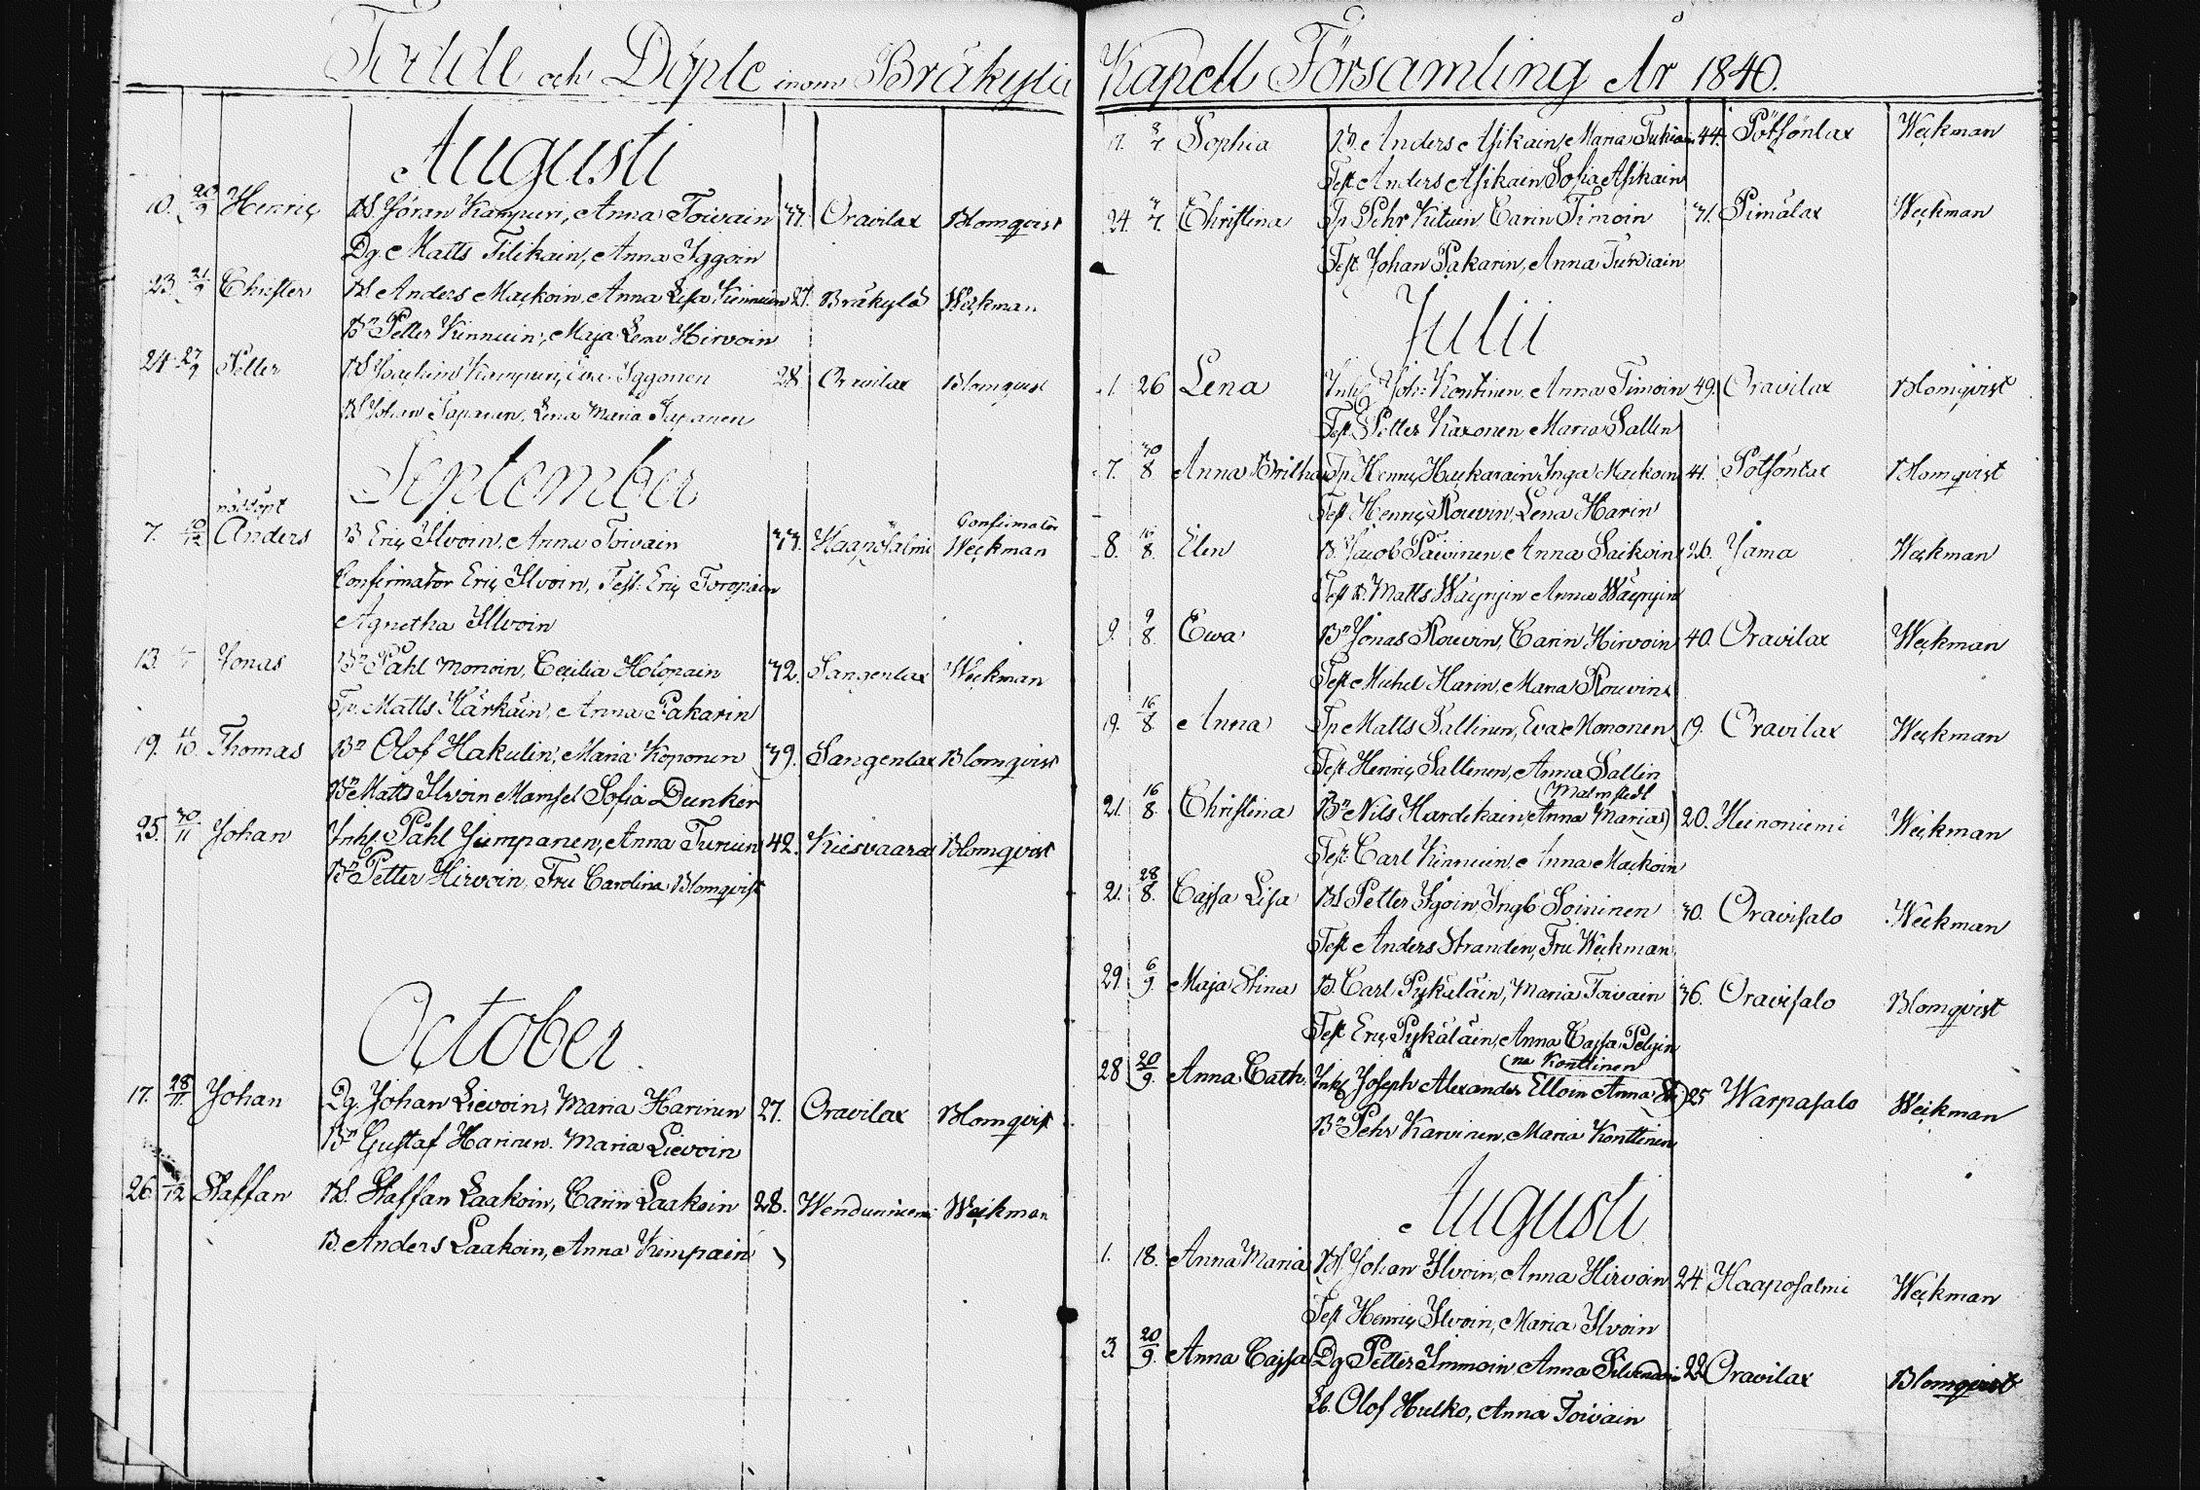 Födde och Döpte inom Bräkylä Kapell Församling År 1840.
Augusti
10. 20/9 Henric BS Jöran Kampuri, Anna Toivain 33. Oravilax Blomqvist
Dg. Matts Tilikain, Anna Iggoin
23. 21/9 Christer BS Anders Mackoin, Anna Lisa Kinnuin 27. Bräkylä Weckman
Bn Petter Kinnuin, Maja Lena Hirvoin
24. 27/9 Petter BS Joachim Kampuri, Eva Iggonen 28 Oravilax Blomqvist
BS Johan Tapanen, Lena Maria Tapanen
September
nöddöpt Confirmator
7. 10/12 Anders B Eric Ilvoin, Anna Toivain 33. Haaposalmi Weckman
Confirmator Eric Ilvoin, Test: Eric Toropain
Agnetha Ilvoin
13. Jonas Bn Påhl Monoin, Cecilia Holopain 32. Sangenlax Weckman
Tp. Matts Härkäin, Anna Pakarin
19. 11/10. Thomas Bn Olof Hakulin, Maria Koponen 39. Sangenlax Blomqvist
Bn Matts Ilvoin Mamsel Sofia Dunker
25. 30/11 Johan Inh. Påhl Jumpanen, Anna Turuin 42. Kiisvaara Blomqvist
Bn Petter Hirvoin, Fru Carolina Blomqvist
October
17. 28/11. Johan Dg. Johan Lievoin, Maria Harinen 27. Oravilax Blomqvist
Bn Gustaf Harinen. Maria Lievoin
26. /12 Staffan BS. Staffan Laakoin, Carin Laakoin 28. Weckman
B. Anders Laakoin, Anna Kimpain
17. 3/7. Sophia B. Anders Asikain, Maria Tukiain 44. Pötsönlax Weckman
Test Anders Asikain Sofia Asikain
24. /7. Christina Tp Pehr Kutuin Carin Timoin 31. Pimälax Weckman
Test. Johan Pakarin, Anna Tukiain
Julii
1. 26 Lena Inh. Joh: Kontinen, Anna Timoin 49. Oravilax Blomqvist
Test. Petter Käxonen Maria Sallin
7. 30/8 Anna Britha Tp Henric Huckarain, Inga Mackoin 41. Pötsönlax Blomqvist
Test Henric Rouvin, Lena Harin
8. 16/8. Elin B. Jacob Päivinen, Anna Saikoin 26. Jama Weckman
Test B. Matts Wäyryin Anna Wäyryin
9. 9/8. Ewa Bn Jonas Rouvin, Carin Hirvoin 40. Oravilax Weckman
Test Michel Harin, Maria Rouvin
19. 16/8. Anna Tp Matts Sallinen, Eva Mononen 19. Oravilax Weckman
Test Henric Sallinen, Anna Sallin
Malmstedt
21. 16/8. Christina Bn Nils Hardikain, Anna Maria 20. Heinoniemi Weckman
Test. Carl Kinnuin, Anna Mackoin
21. 28/8. Cajsa Lisa BS Petter Igoin, Ingb. Soininen 30. Oravisalo Weckman
Test Anders Stranden, Fru Weckman
29. 6/9 Maja Stina B. Carl Pykäläin, Maria Toivain 36. Oravisalo Blomqvist
Test Eric Pykäläin, Anna Cajsa Pelgin
na Konttinen
28 20/9. Anna Cath. Inh. Joseph Alexander Elloin Anna Sti 25 Warpasalo Weckman
Bn Pehr Karvinen, Maria Konttinen
Augusti
1. 18. Anna Maria BS Johan Ilvoin, Anna Hirvoin 24. Haaposalmi Weckman
Test Henric Ilvoin, Maria Ilvoin
3. 20/9. Anna Cajsa Dg Petter Immoin, Anna 22 Oravilax Blomqvist
Olof Hulko, Anna Toivain